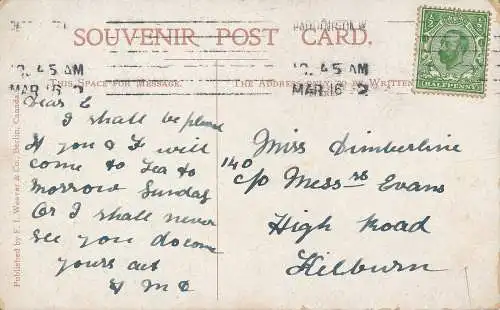 PADDINGTON W
SOUVENIR POST CARD.
45 AM
MAR 16
45 AM
MAR 16
HALFPENNY
THIS SPACE FOR MESSAGE.
THE ADDRESS WRITTEN
Published by F. I. Weaver & Co., Berlin, Canada.
Dear E
I shall be pleased
if you & F will
come to Tea to
morrow Sunday
Or I shall never
see you do come
yours act
& M C
Miss Dimberline
140 c/o Messrs Evans
High Road
Kilburn